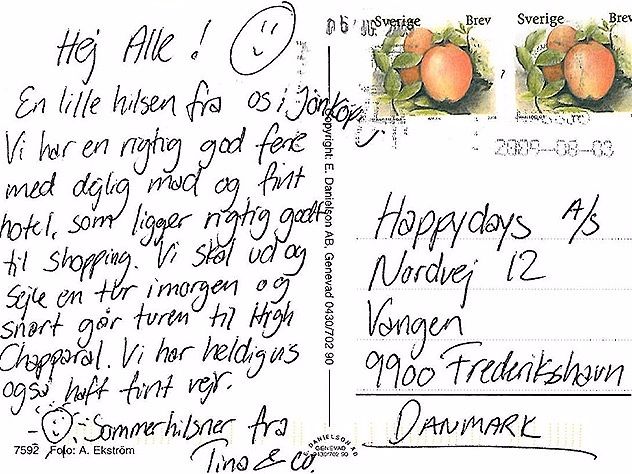 Hej Alle!
En lille hilsen fra os i Jönköp
Vi har en rigtig god ferie
med dejlig mad og fint
hotel, som ligger rigtig godt
til shopping. Vi skal ud og
sejle en tur i morgen og
snart går turen til High
Chapparal. Vi har heldigvis
også haft fint vejr.
Sommerhilsner fra
Tina & co.
7592 Foto: A. Ekström
Copyright: E. Danielson AB, Genevad 0430/702 90
DANIELSON AB
GENEVAD
0430/702 90
Sverige Brev
Sverige Brev
2009-08-03
Happydays A/S
Nordvej 12
Vangen
9900 Frederikshavn
DANMARK